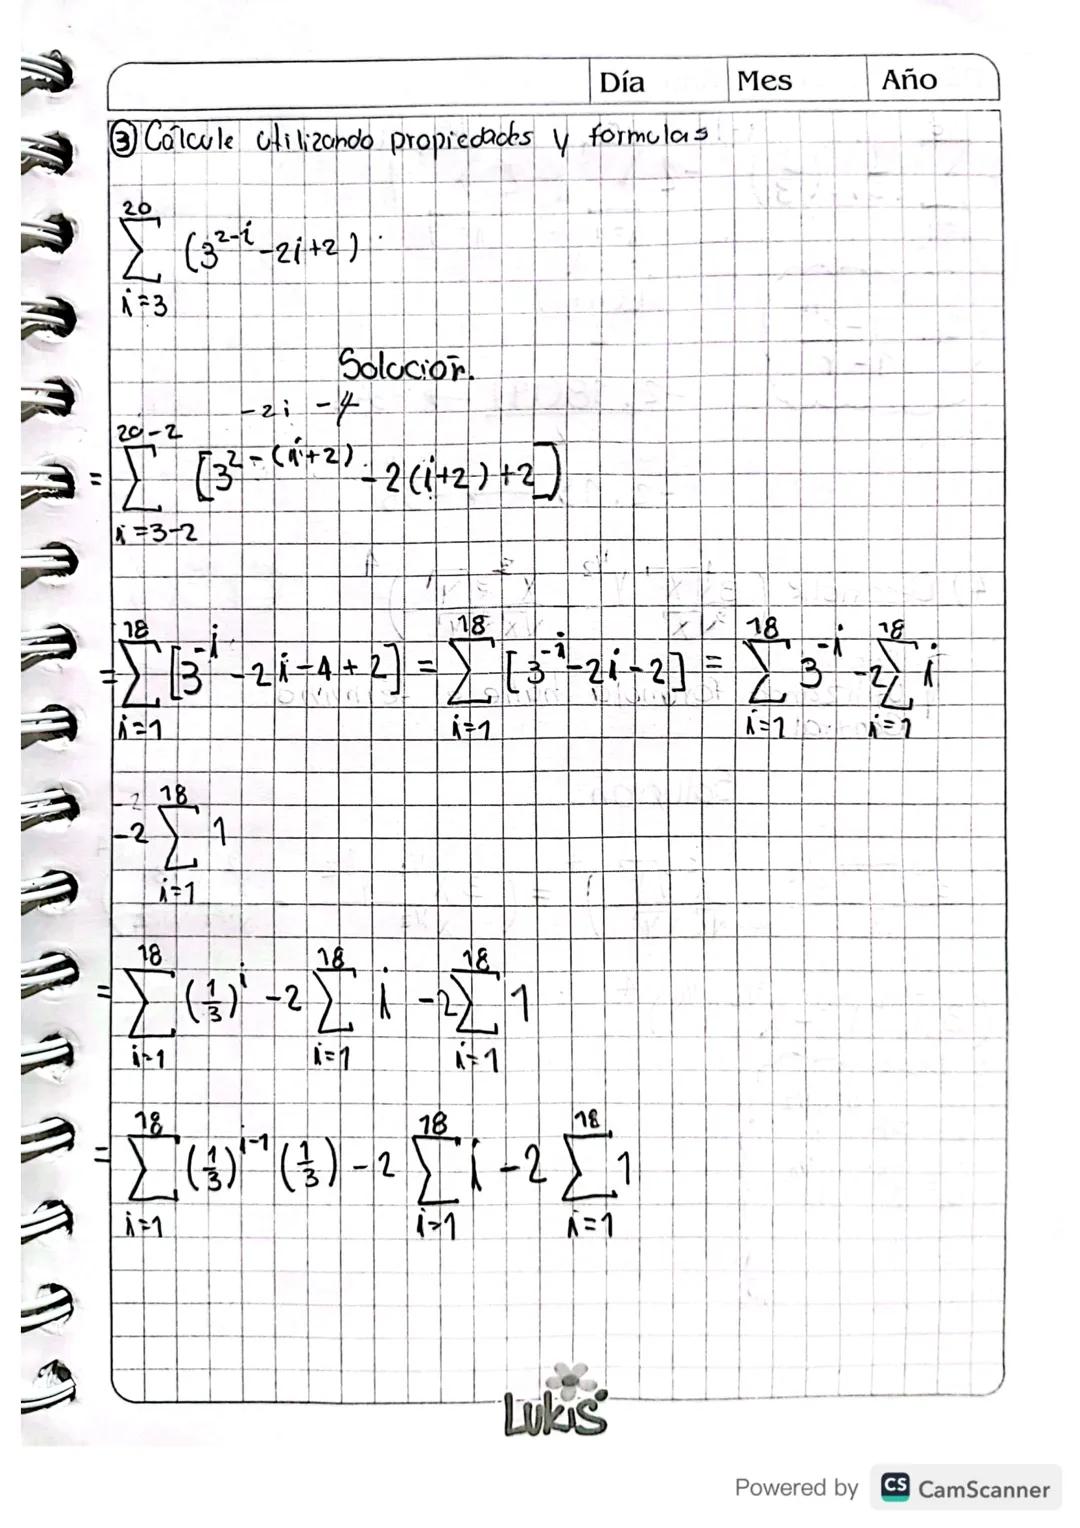 Día Mes Año
③ Calcule utilizando propiedades y formulas
20
∑ (3^{2-i} -2i+2)
i=3
Solucion.
-2i -4
20-2
= ∑ [3^{2-(i+2)} -2(i+2)+2]
i=3-2
18 18 18 18
= ∑ [3^{-i} -2i-4+2] = ∑ [3^{-i} -2i-2] = ∑ 3^{-i} -2∑ i
i=1 i=1 i=1 i=1
-2 18
-2 ∑ 1
i=1
18 18 18
= ∑ (1/3)^i -2 ∑ i -2∑ 1
i=1 i=1 i=1
18 18 18
= ∑ (1/3)^{i-1} (1/3) -2 ∑ i -2 ∑ 1
i=1 i=1 i=1
Lukis
Powered by CS CamScanner